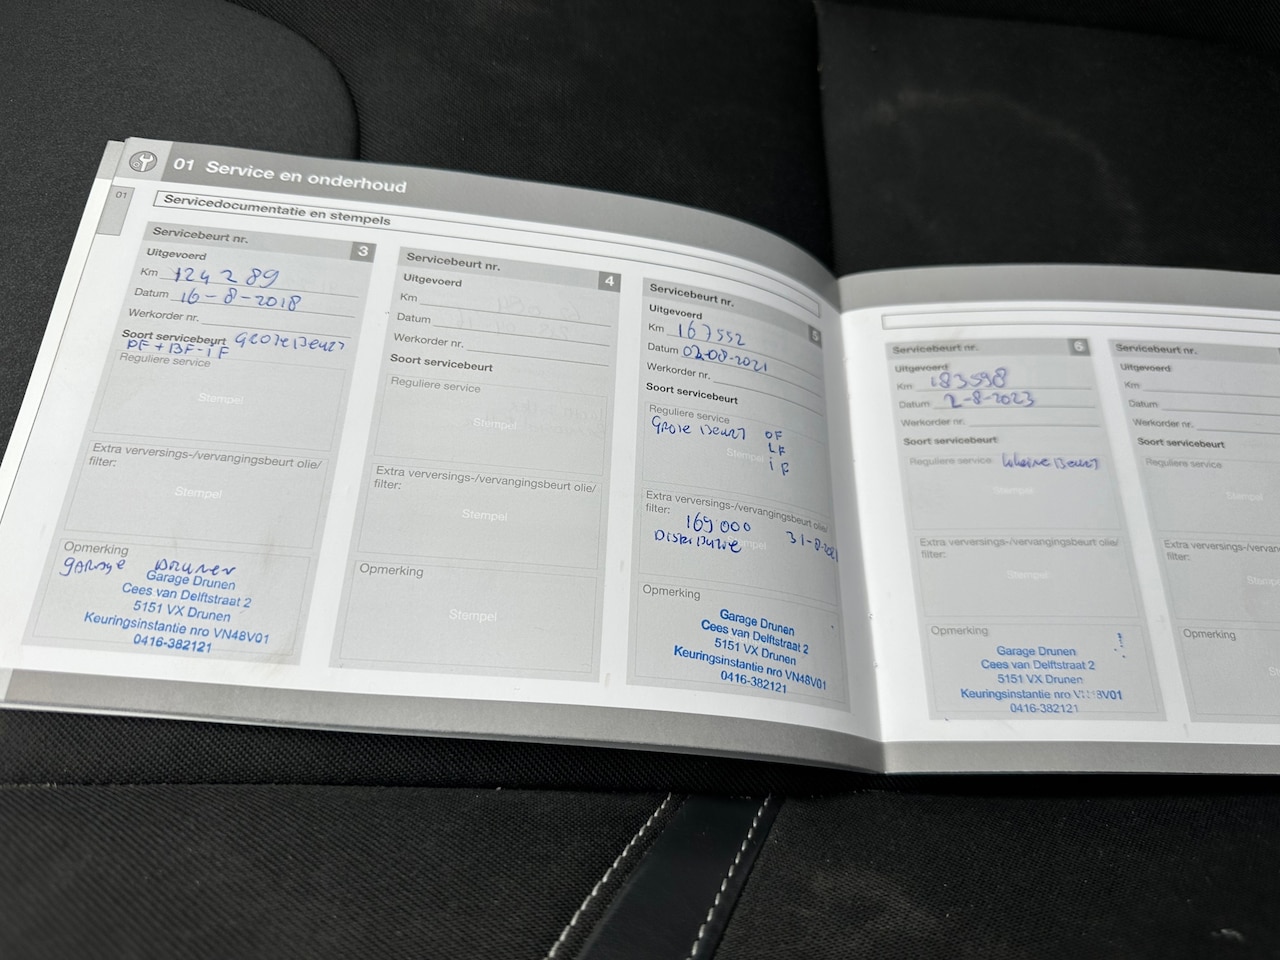 01 Service en onderhoud
01
Servicedocumentatie en stempels
Servicebeurt nr. 3
Uitgevoerd
Km 124289
Datum 16-8-2018
Werkorder nr.
Soort servicebeurt Grote Beurt
PF + BF - iF
Reguliere service
Stempel
Extra verversings-/vervangingsbeurt olie/
filter:
Stempel
Opmerking
garage Drunen
Garage Drunen
Cees van Delftstraat 2
5151 VX Drunen
Keuringsinstantie nro VN48V01
0416-382121
Servicebeurt nr. 4
Uitgevoerd
Km
Datum
Werkorder nr.
Soort servicebeurt
Reguliere service
Stempel
Extra verversings-/vervangingsbeurt olie/
filter:
Stempel
Opmerking
Stempel
Servicebeurt nr. 5
Uitgevoerd
Km 167552
Datum 02-08-2021
Werkorder nr.
Soort servicebeurt
Reguliere service
Grote Beurt OF
LF
Stempel
iF
Extra verversings-/vervangingsbeurt olie/
filter:
169000 31-8-2021
Distributie
Opmerking
Garage Drunen
Cees van Delftstraat 2
5151 VX Drunen
Keuringsinstantie nro VN48V01
0416-382121
Servicebeurt nr. 6
Uitgevoerd
Km 183598
Datum 2-8-2023
Werkorder nr.
Soort servicebeurt
Reguliere service Kleine Beurt
Stempel
Extra verversings-/vervangingsbeurt olie/
filter:
Stempel
Opmerking
Garage Drunen
Cees van Delftstraat 2
5151 VX Drunen
Keuringsinstantie nro V 8V01
0416-382121
Servicebeurt nr.
Uitgevoerd
Km
Datum
Werkorder nr.
Soort servicebeurt
Reguliere service
Stempel
Extra verversings-/vervan
filter:
Opmerking